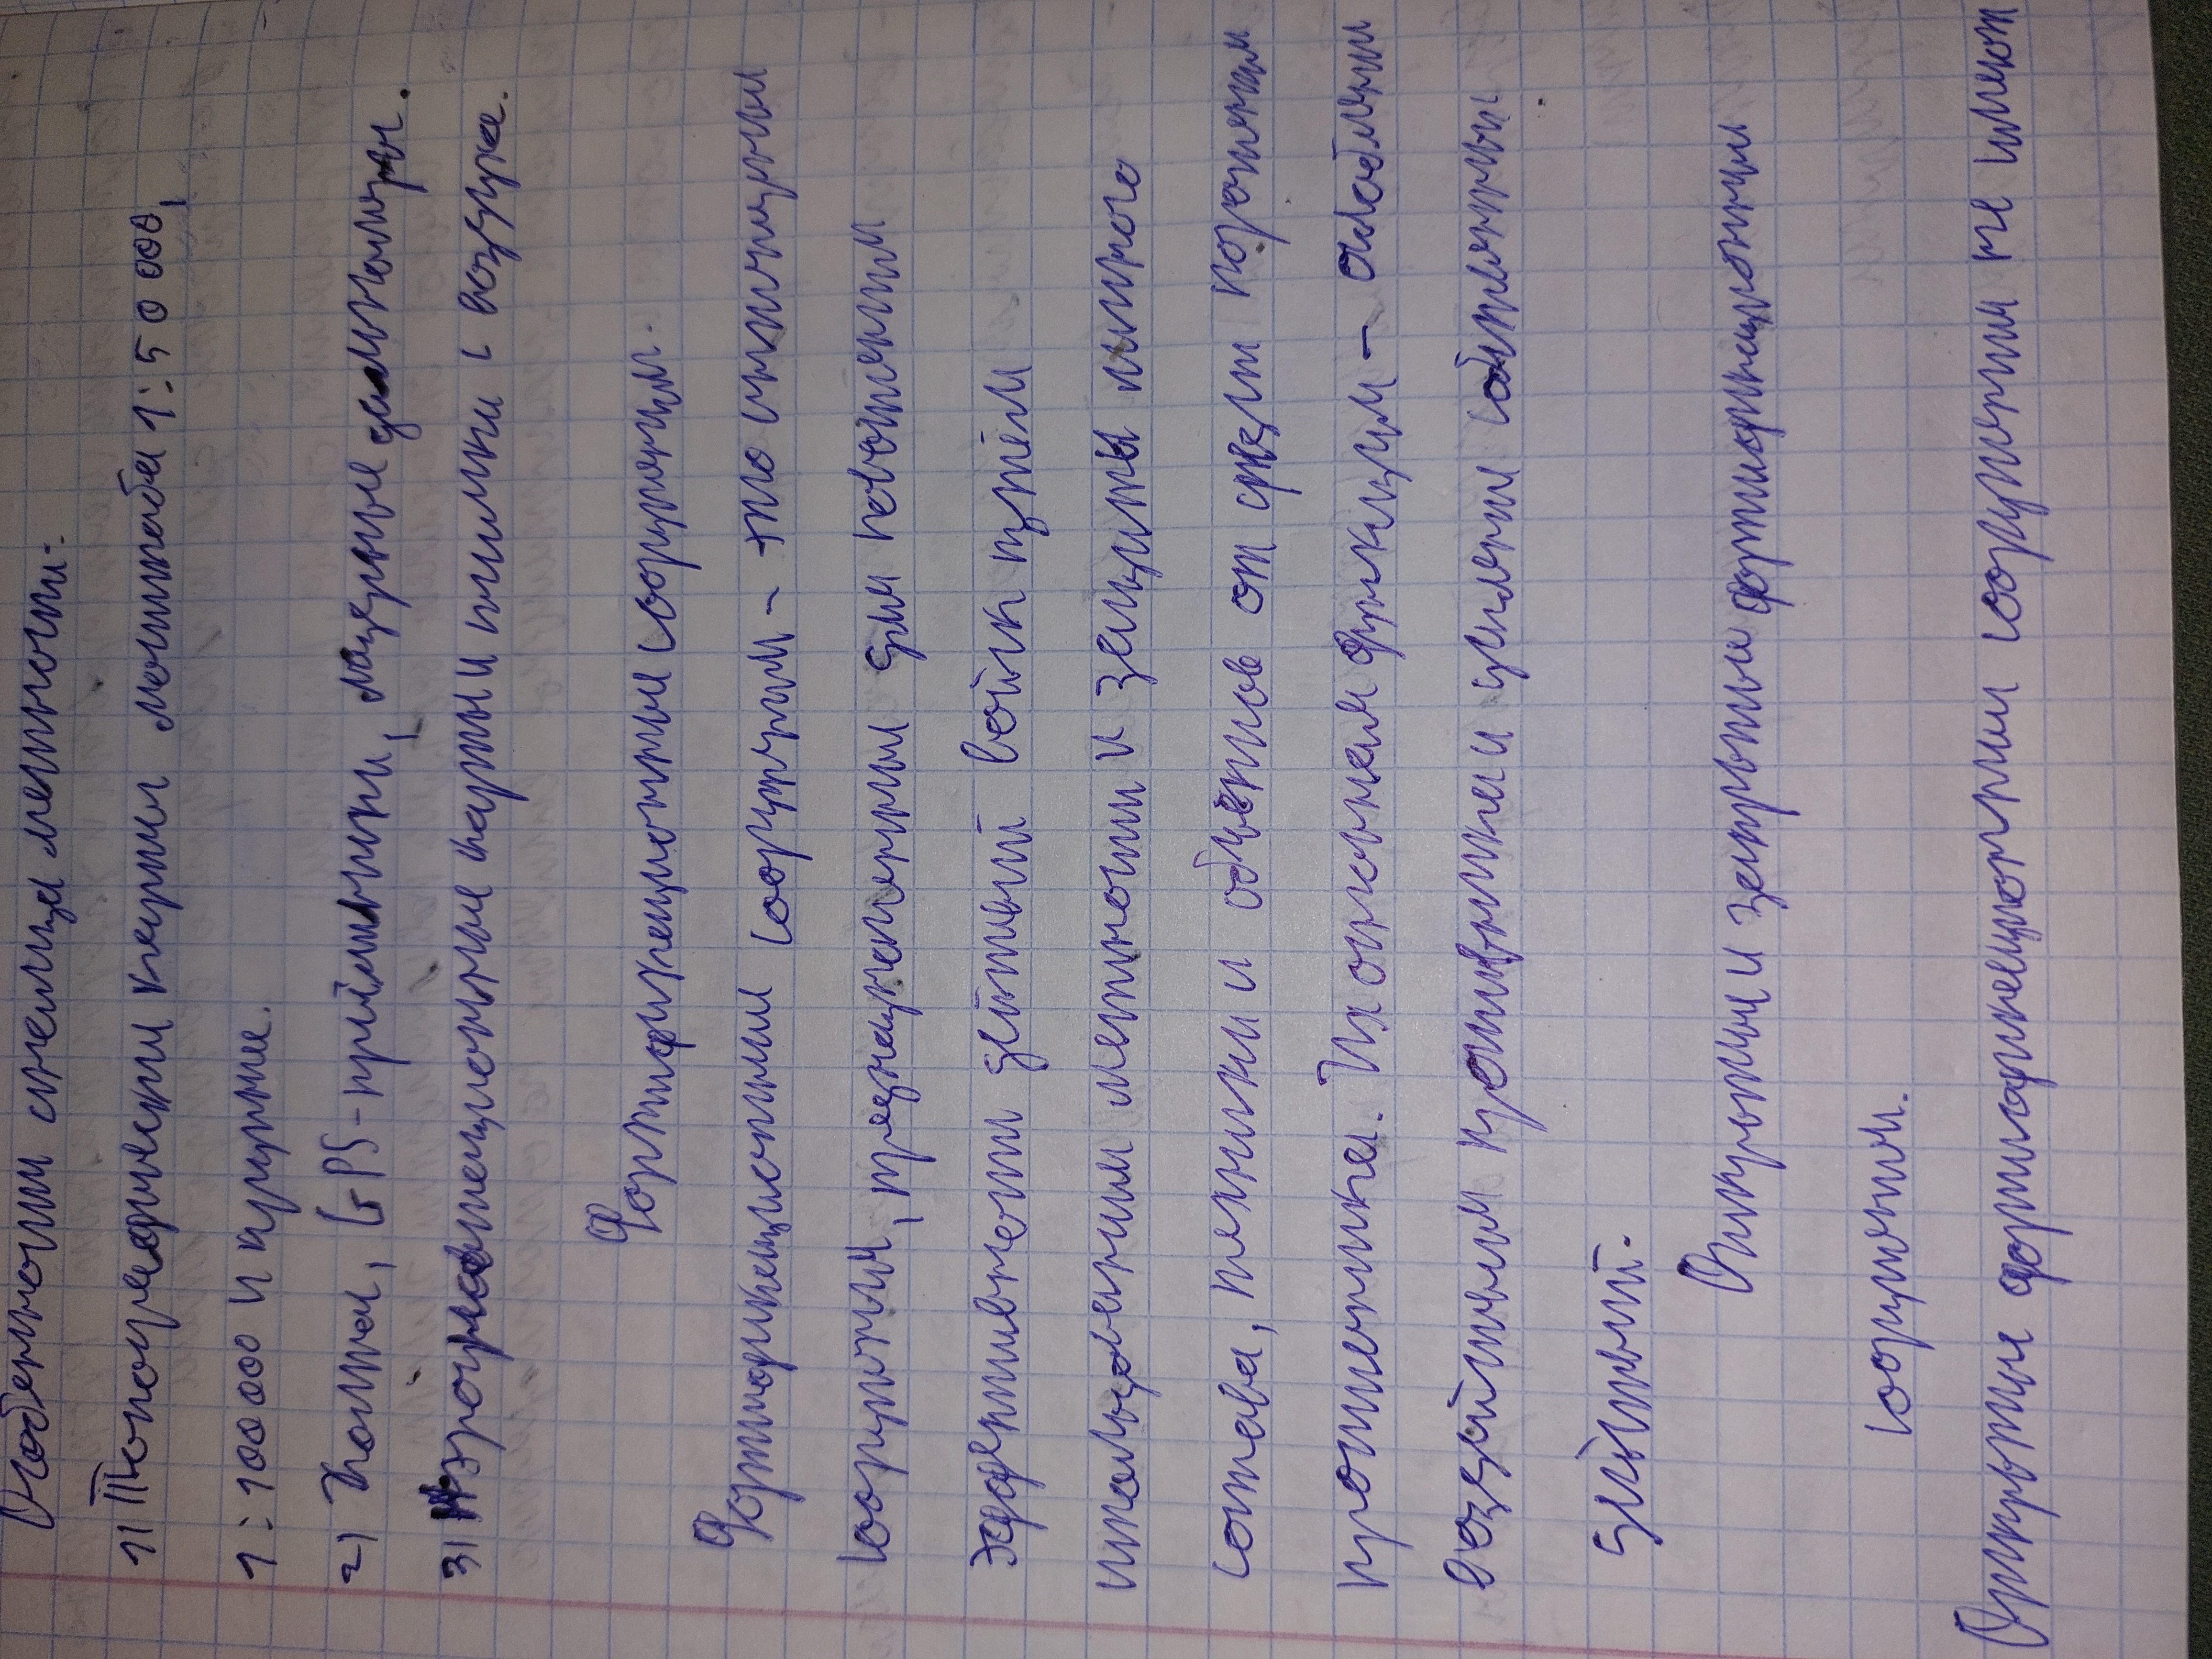 Особенности анализа местности:
1) Топографические карты масштаба 1:50 000,
1:10000 и крупнее.
2) Компас, GPS-приёмники, лазерные дальномеры.
3) Аэрофотографационные карты и снимки с воздуха.
Фортификационные сооружения.
Фортификационные сооружения – это специальные
сооружения, предназначенные для повышения
эффективности действий войск путём
использования местности и защиты личного
состава, техники и объектов от средств поражения
противника. Их основная функция – ослабления
воздействия противника и усиления собственных
действий.
Открытые и закрытые фортификационные
сооружения.
Открытые фортификационные сооружения не имеют